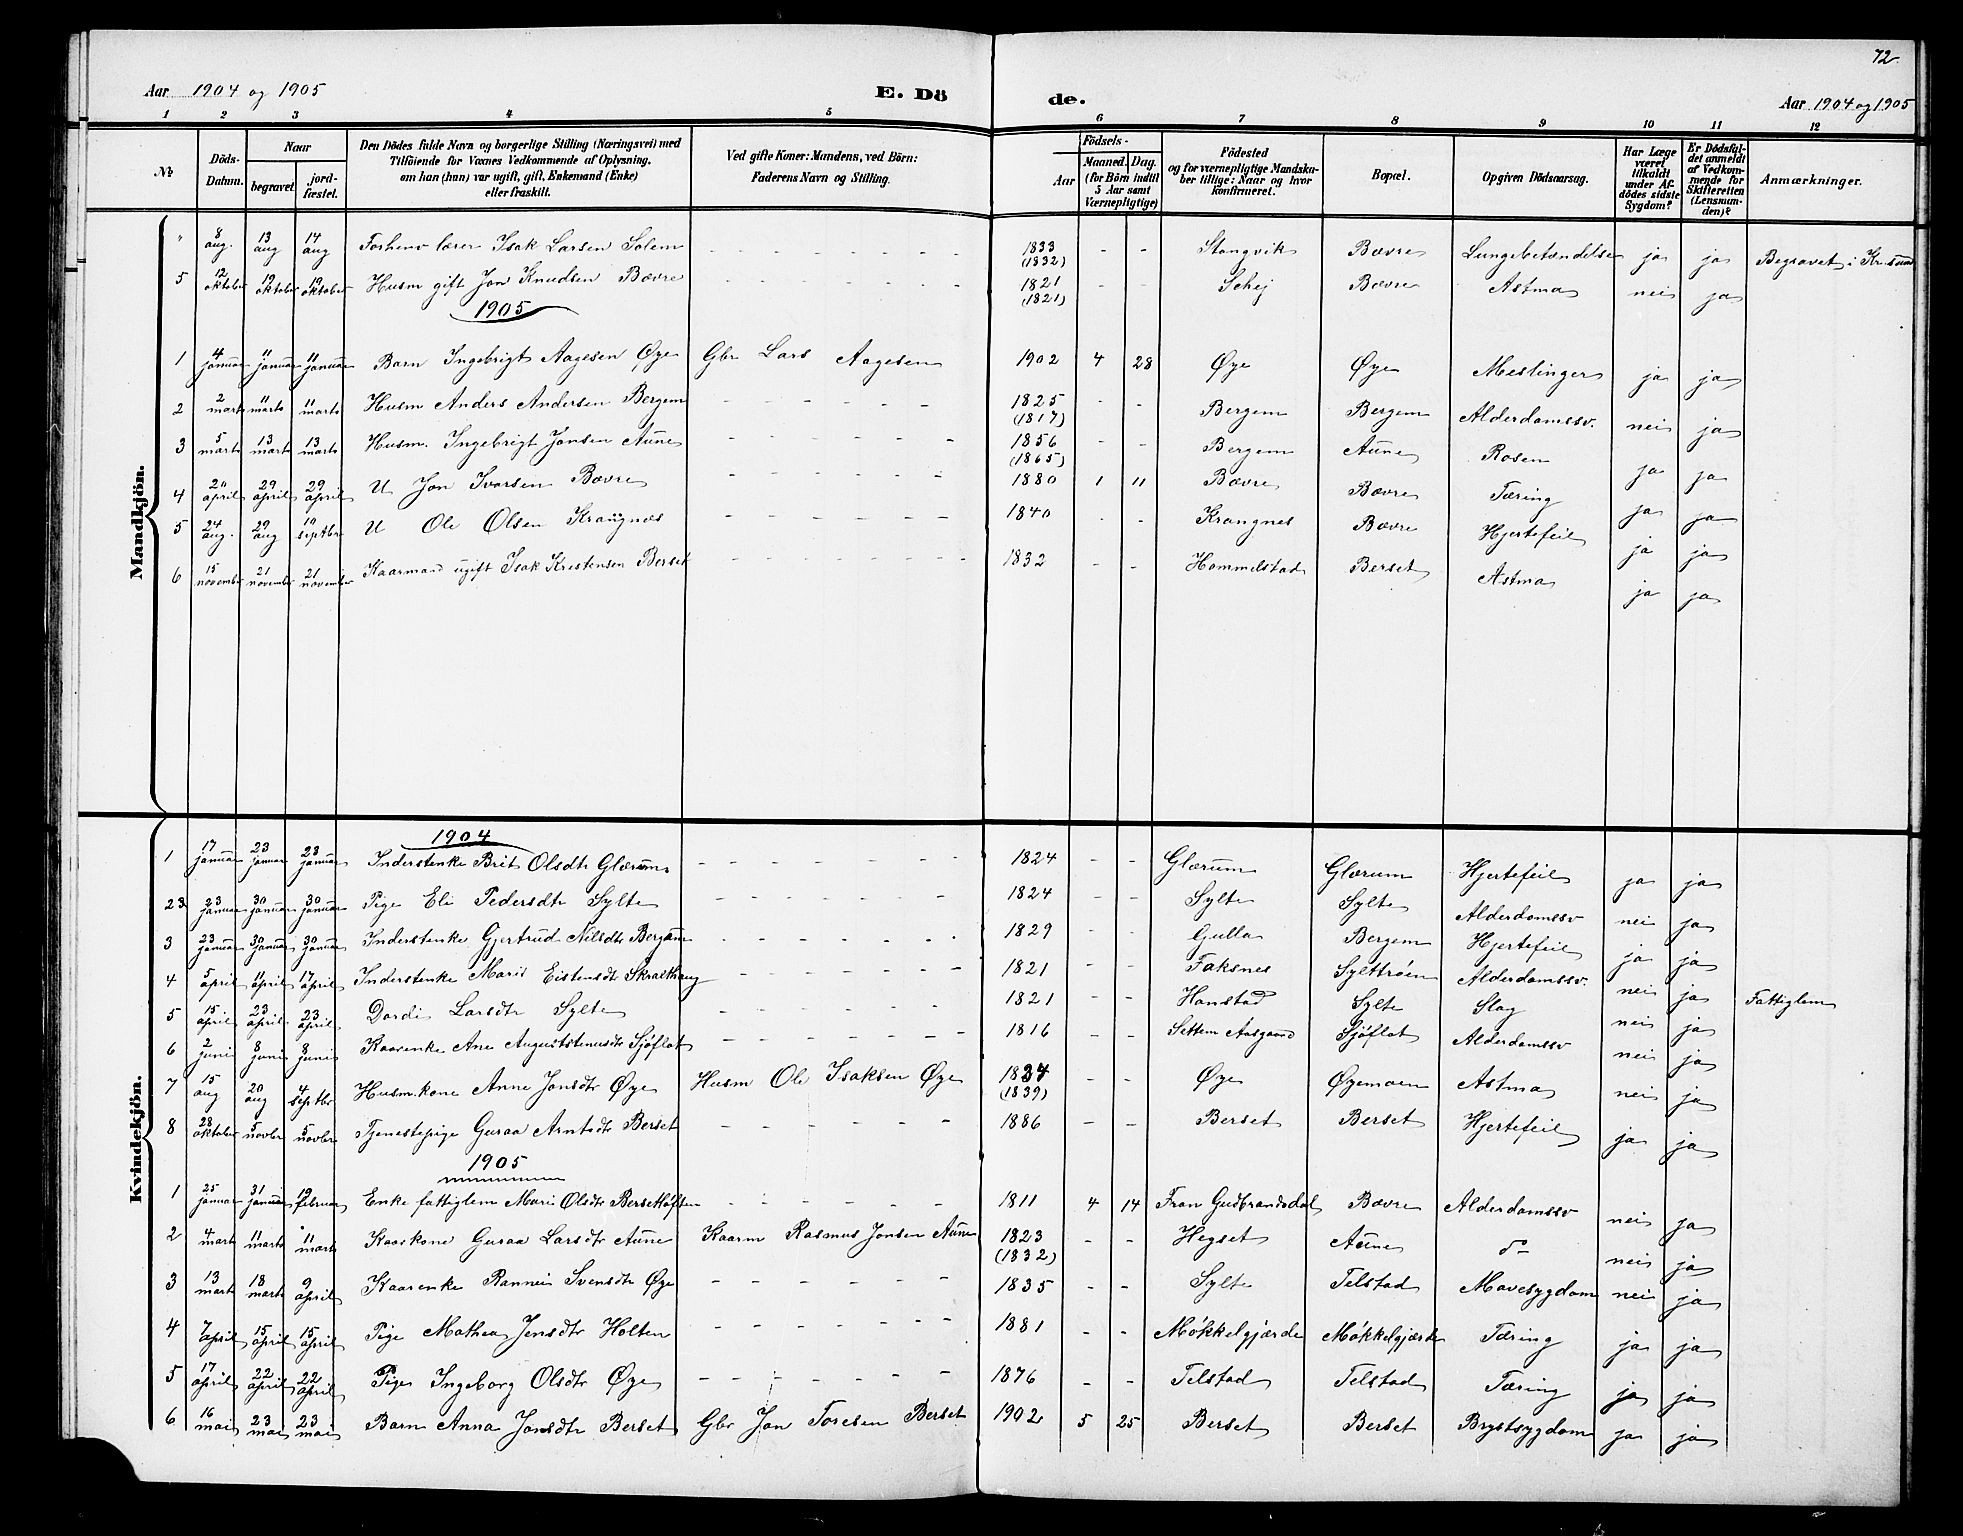 72.
Aar 1904 og 1905 E. Dö de. Aar 1904 og 1905
1 2 3 4 5 6 7 8 9 10 11 12
№ Döds-Datum. Naar begravet. jordfæstet. Den Dödes fulde Navn og borgerlige Stilling (Næringsvei) med Tilföiende for Voxnes Vedkommende af Oplysning, om han (hun) var ugift, gift, Enkemand (Enke) eller fraskilt. Ved gifte Koner: Mandens, ved Börn: Faderens Navn og Stilling. Födsels- Aar Maaned. Dag. (for Börn indtil 5 Aar samt Værnepligtige) Födested og for værnepligtige Mandskaber tillige: Naar og hvor konfirmeret. Bopæl. Opgiven Dödsaarsag. Har Læge været tilkaldt under Afdödes sidste Sygdom? Er Dödsfaldet anmeldt af Vedkommende for Skifteretten (Lensmanden)? Anmærkninger.
Mandkjön.
" 8 aug. 13 aug 14 aug Forhenv lærer Isak Larsen Solem - - - - - - 1833 (1832) - - Stangvik Bævre Lungebetændelse ja ja Begravet i Kr.sund
5 12 oktober 19 oktober 19 oktober Husm gift Jon Knudsen Bævre - - - - - - 1821 (1821) - - Schej Bævre Astma nei ja
1905
1 4 januar 11 januar 11 januar Barn Ingebrigt Aagesen Øye Gbr Lars Aagesen 1902 4 28 Øye Øye Meslinger ja ja
2 2 marts 11 marts 11 marts Husm Anders Andersen Bergem - - - - - - 1825 (1817) - - Bergem Bergem Alderdomssv. nei ja
3 5 marts 13 marts 13 marts Husm. Ingebrigt Jonsen Aune - - - - - - 1856 (1865) - - Bergem Aune Rosen ja ja
4 20 april 29 april 29 april U Jon Ivarsen Bævre - - - - - 1880 1 11 Bævre Bævre Tæring ja ja
5 24 aug. 29 aug 10 septbr U Ole Olsen Krangnæs - - - - - - 1840 - - Krangnes Bævre Hjertefeil ja ja
6 15 november 21 november 21 november Kaarmand ugift Isak Kristensen Berset - - - - - - 1832 - - Hommelstad Berset Astma ja ja
Kvindekjön.
1904
1 17 januar 23 januar 23 januar Inderstenke Brit Olsdtr Glærum - - - - - - 1824 - - Glærum Glærum Hjertefeil ja ja
2 23 januar 30 januar 30 januar Pige Eli Pedersdtr Sylte - - - - - - 1824 - - Sylte Sylte Alderdomssv nei ja
3 23 januar 30 januar 30 januar Inderstenke Gjertrud Nilsdtr Bergem - - - - - - 1829 - - Gulla Bergem Hjertefeil ja ja
4 5 april 11 april 17 april Inderstenke Marit Eistensdtr Skralthaug - - - - - - 1821 - - Faksnes Sylttrøen Alderdomssv. nei ja
5 15 april 23 april 23 april Dordi Larsdtr Sylte - - - - - - 1821 - - Hanstad Sylte Slag nei ja Fattiglem
6 2 juni 8 juni 8 juni Kaarenke Ane Auguststenusdtr Sjøflot - - - - - - 1816 - - Settem Aasgaard Sjøflot Alderdomssv nei ja
7 15 aug 20 aug 4 septbr Husm.kone Anne Jonsdtr Øye Husm Ole Isaksen Øye 1834 (1839) - - Øye Øyemoen Astma nei ja
8 28 oktober 5 novbr 5 novbr Tjenestepige Guraa Arntsdtr Berset - - - - - - 1886 - - Berset Berset Hjertefeil ja ja
1905
1 25 januar 31 januar 19 februar Enke fattiglem Marit Olsdtr Bersetløften - - - - - 1811 4 14 Fran Gudbrandsdal Bævre Alderdomssv nei ja
2 4 marts 11 marts 11 marts Kaarkone Guraa Larsdtr Aune Kaarm Rasmus Jonsen Aune 1823 (1832) - - Hegset Aune do nei ja
3 13 marts 18 marts 9 april Kaarenke Rannei Svensdtr Øye - - - - - - 1835 - - Sylte Telstad Mavesygdom nei ja
4 7 april 15 april 15 april Pige Mathea Jensdtr Holten - - - - - - 1881 - - Møkkelgjærde Møkkelgjærde Tæring ja ja
5 17 april 22 april 22 april Pige Ingeborg Olsdtr Øye - - - - - - 1876 - - Telstad Telstad Tæring ja ja
6 16 mai 23 mai 23 mai Barn Anna Jonsdtr Berset Gbr Jon Toresen Berset 1902 5 25 Berset Berset Brystsygdom ja ja